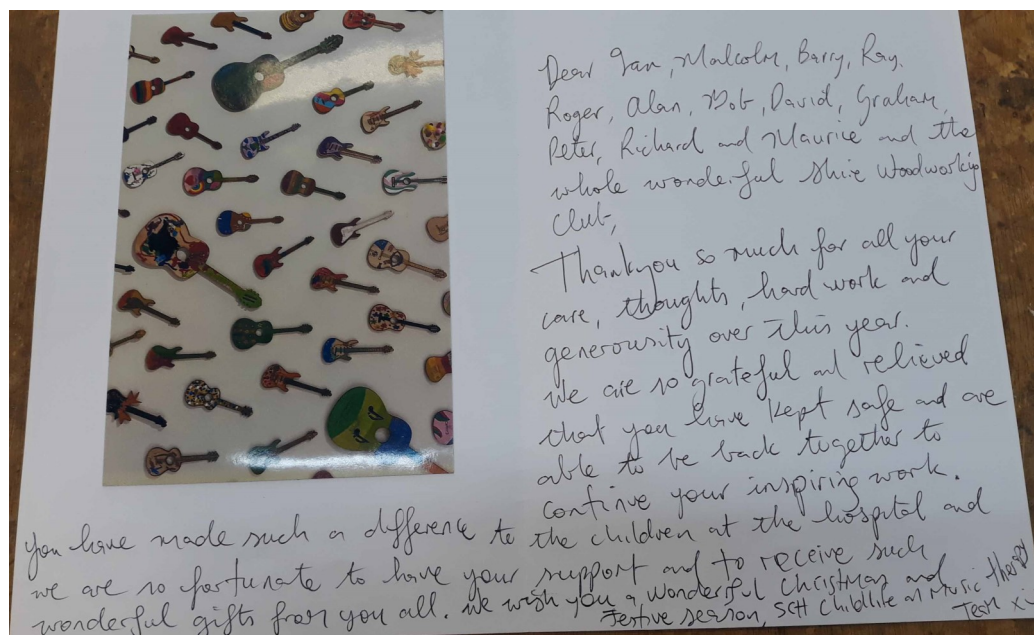 Dear Ian, Malcolm, Barry, Ray,
Roger, Alan, Bob, David, Graham,
Peter, Richard and Maurice and the
whole wonderful Shire Woodworking
Club,
Thankyou so much for all your
care, thoughts, hard work and
generousity over this year.
We are so grateful and relieved
that you have kept safe and are
able to be back together to
continue your inspiring work.
You have made such a difference to the children at the hospital and
we are so fortunate to have your support and to receive such
wonderful gifts from you all. We wish you a wonderful Christmas and
festive season, SCH Childlife and Music Therapy
Team xx